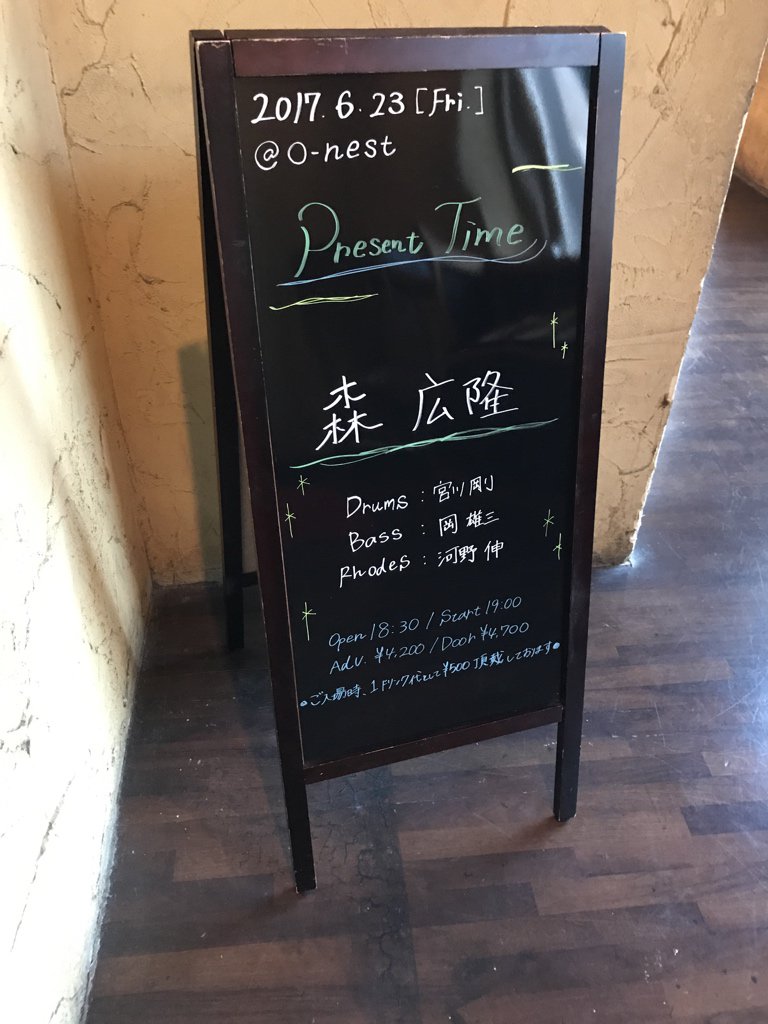 2017.6.23 [Fri.]
@O-nest
Present Time
森 広隆
Drums : 宮川 剛
Bass : 岡 雄三
Rhodes : 河野 伸
Open 18:30 / Start 19:00
Adv. ¥4,200 / Door ¥4,700
●ご入場時、1ドリンク代として¥500頂戴しております●